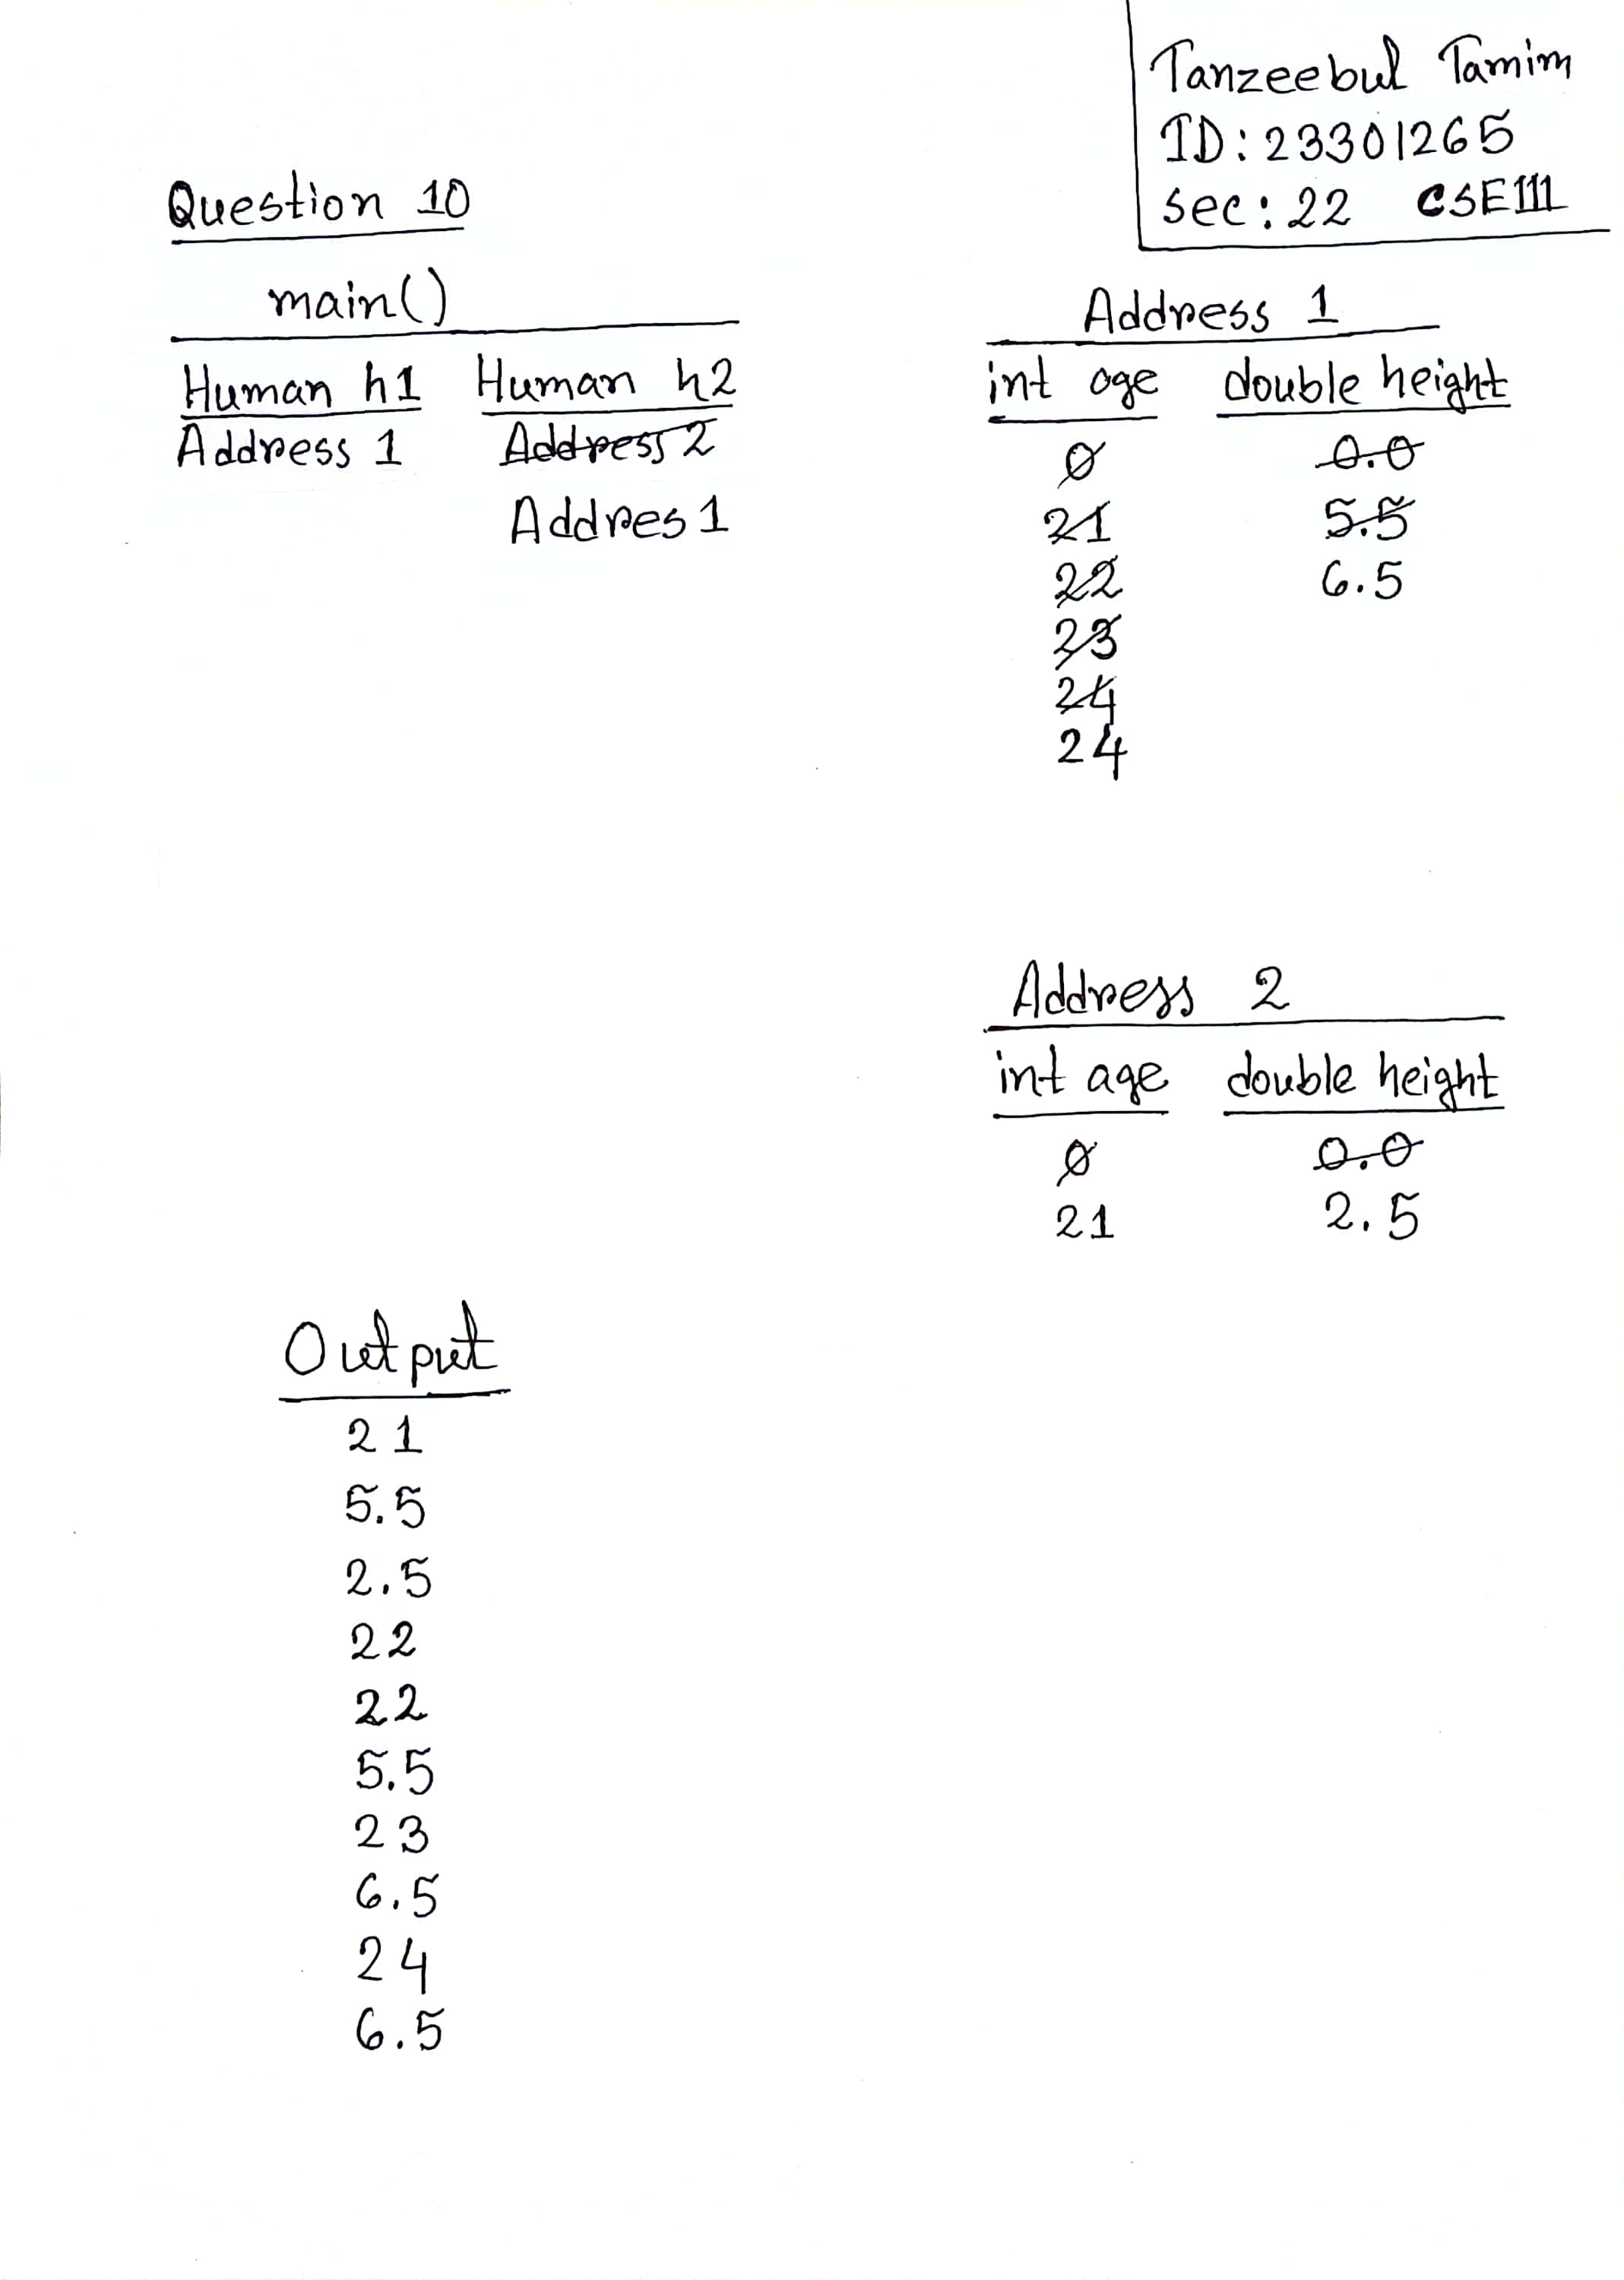 Tanzeebul Tamim
ID: 23301265
sec: 22 CSE111
Question 10
main()
Human h1 Human h2
Address 1 Address 2
Addres 1
Address 1
int age double height
0 0.0
21 5.5
22 6.5
23
24
24
Address 2
int age double height
0 0.0
21 2.5
Output
21
5.5
2.5
22
22
5.5
23
6.5
24
6.5